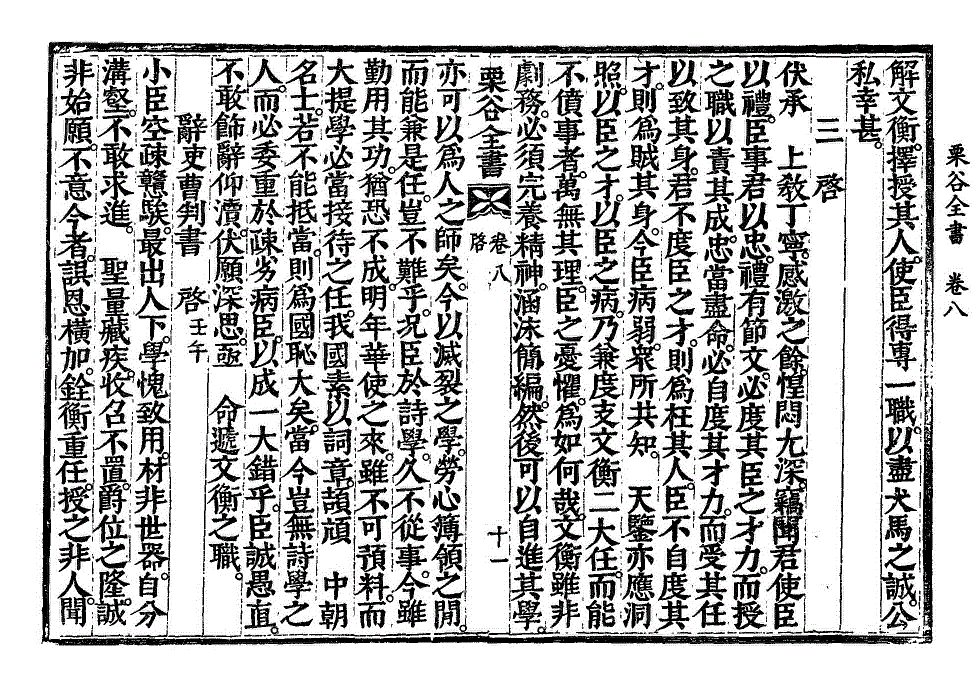 栗谷全書　卷八
解文衡。擇授其人。使臣得專一職。以盡犬馬之誠。公
私幸甚。
三啓
伏承　上敎丁寧。感激之餘。惶悶尤深。竊聞君使臣
以禮。臣事君以忠。禮有節文。必度其臣之才力。而授
之職以責其成。忠當盡命。必自度其才力。而受其任
以致其身。君不度臣之才。則爲枉其人。臣不自度其
才。則爲賊其身。今臣病弱。衆所共知。　天鑒亦應洞
照。以臣之才。以臣之病。乃兼度支文衡二大任。而能
不僨事者。萬無其理。臣之憂懼。爲如何哉。文衡雖非
劇務。必須完養精神。涵泳簡編。然後可以自進其學。
栗谷全書　卷八　啓　十一
亦可以爲人之師矣。今以滅裂之學。勞心簿領之閒。
而能兼是任。豈不難乎。況臣於詩學。久不從事。今雖
勤用其功。猶恐不成。明年華使之來。雖不可預料。而
大提學必當接待之任。我國素以詞章。頡頏　中朝
名士。若不能抵當。則爲國恥大矣。當今豈無詩學之
人。而必委重於疎劣病臣。以成一大錯乎。臣誠愚直。
不敢飾辭仰瀆。伏願深思。亟　命遞文衡之職。
辭吏曹判書　啓壬午
小臣空疎戇騃。最出人下。學愧致用。材非世器。自分
溝壑。不敢求進。　聖量藏疾。收召不置。爵位之隆。誠
非始願。不意今者。誤恩橫加。銓衡重任。授之非人。聞